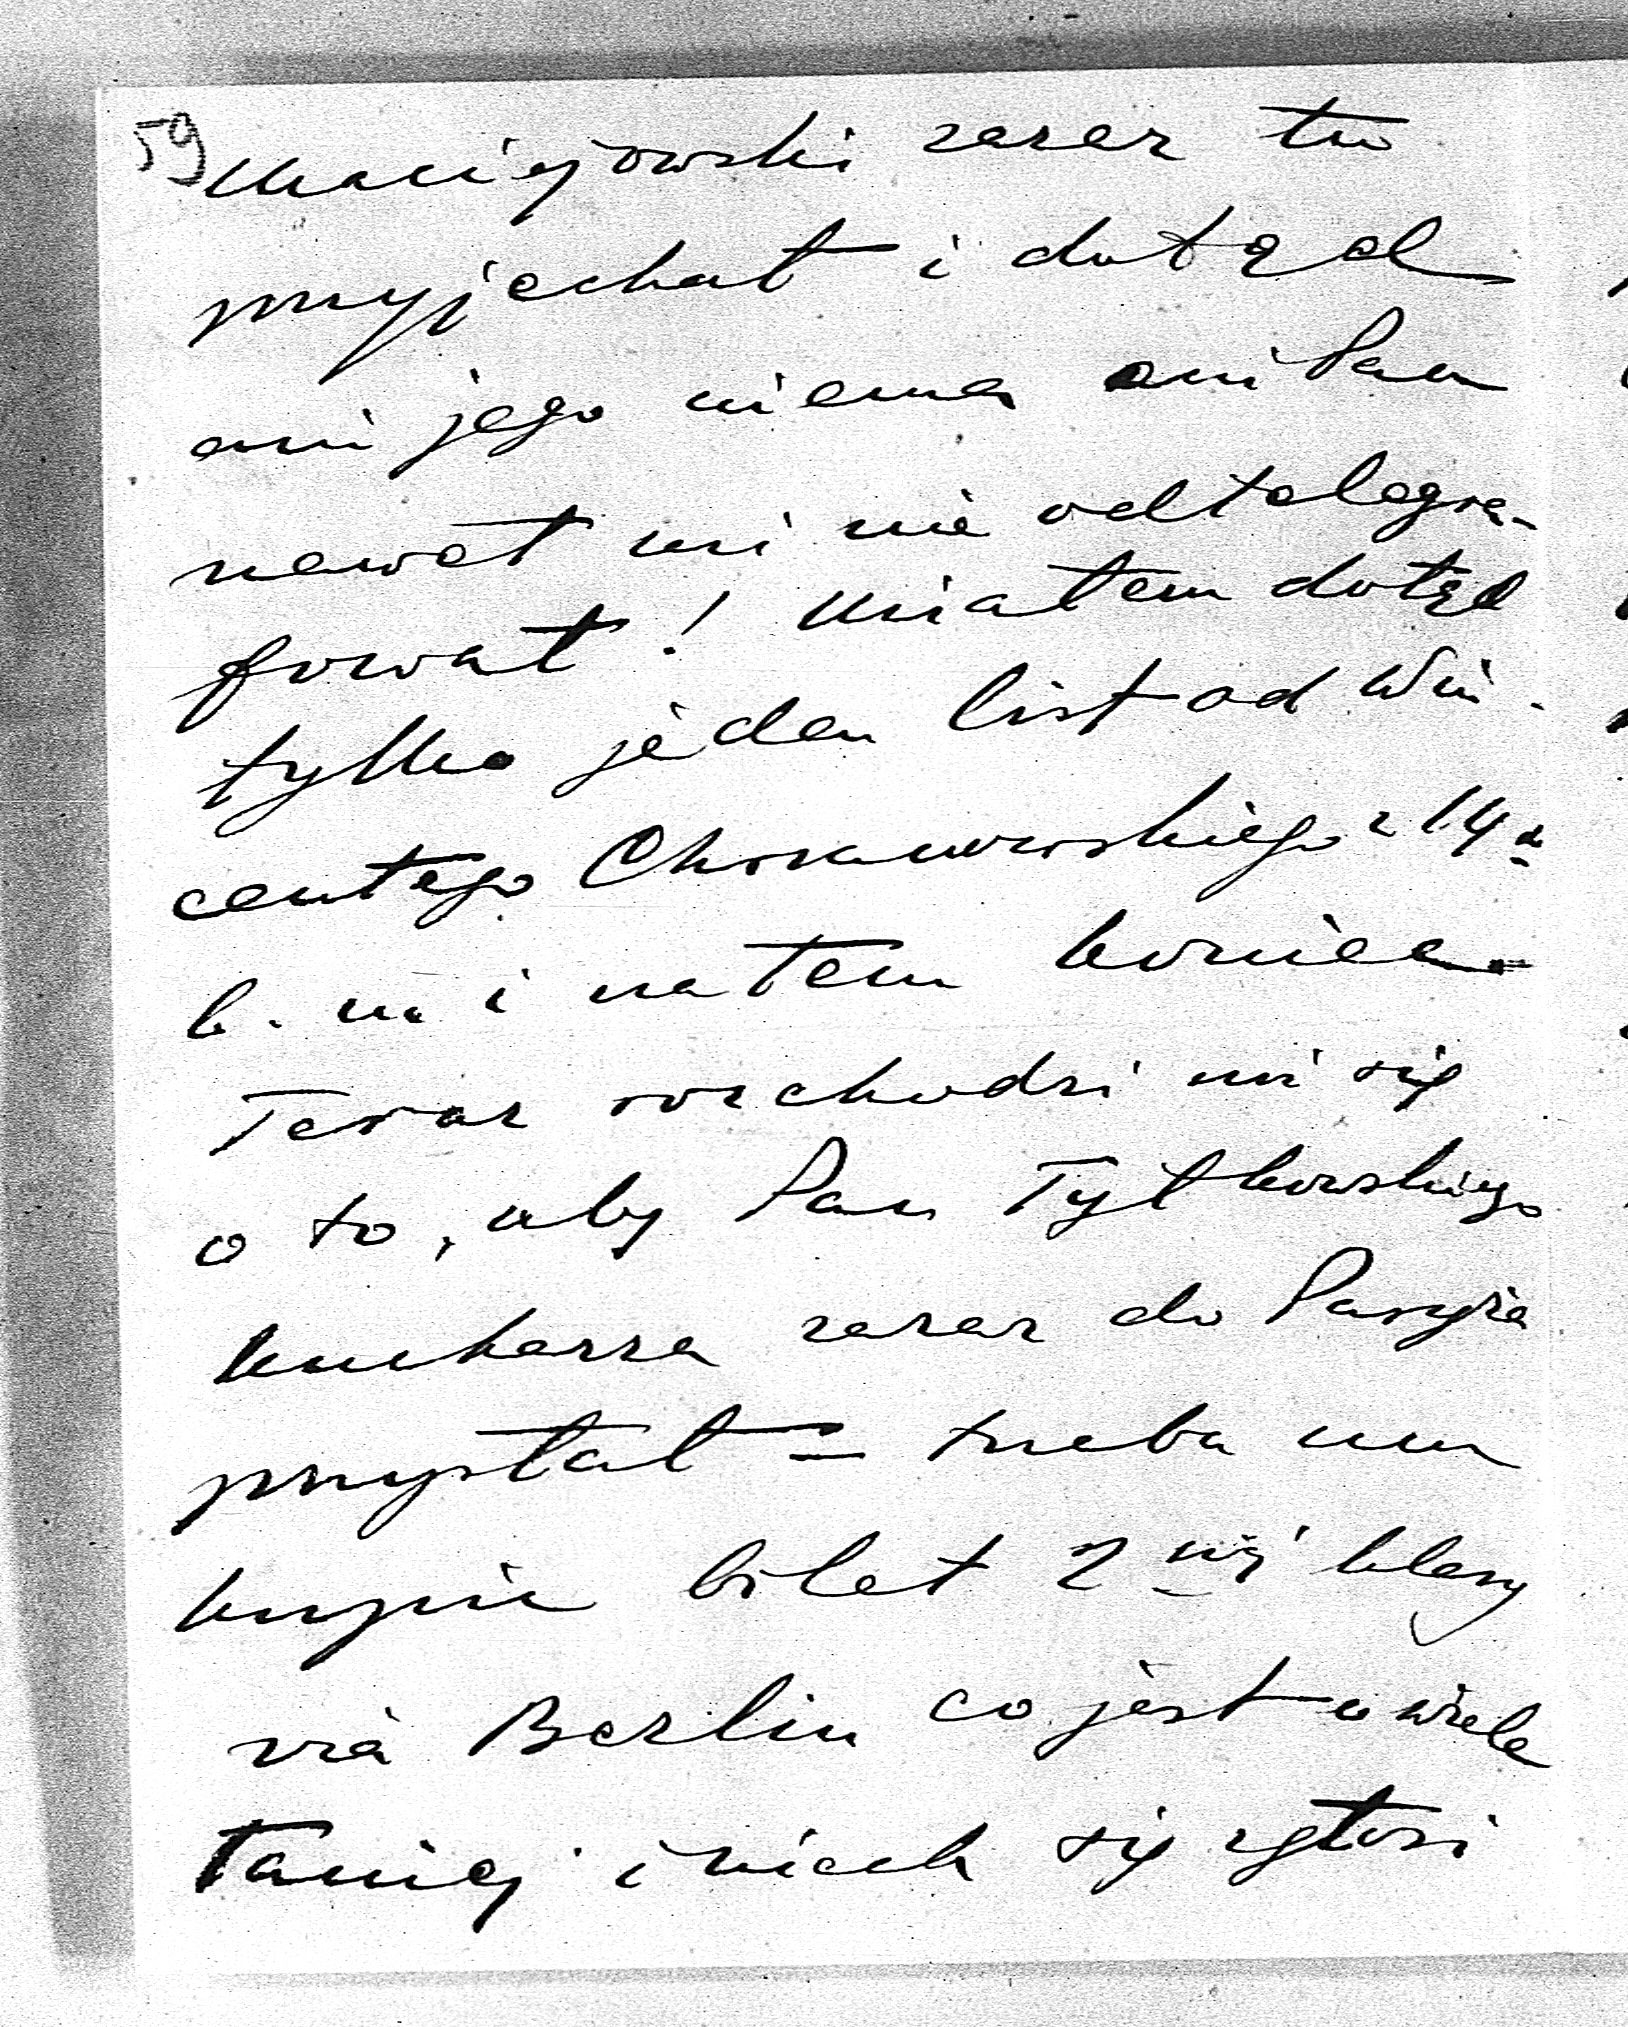 59
Maciejowski zaraz tu
przyjechał i dotąd
ani jego niema ani Pan
nawet mi nie odtelegra-
fował! Miałem dotąd
tylko jeden list od Win-
centego Chrzanowskiego z 14 n
b. m. i na tem koniec.
Teraz rozchodzi mi się
o to, aby Pan Tytkowskiego
kucharza zaraz do Paryża
przysłał = trzeba mu
kupić bilet 2 giej klasy
via Berlin co jest o wiele
taniej i niech się zgłosi